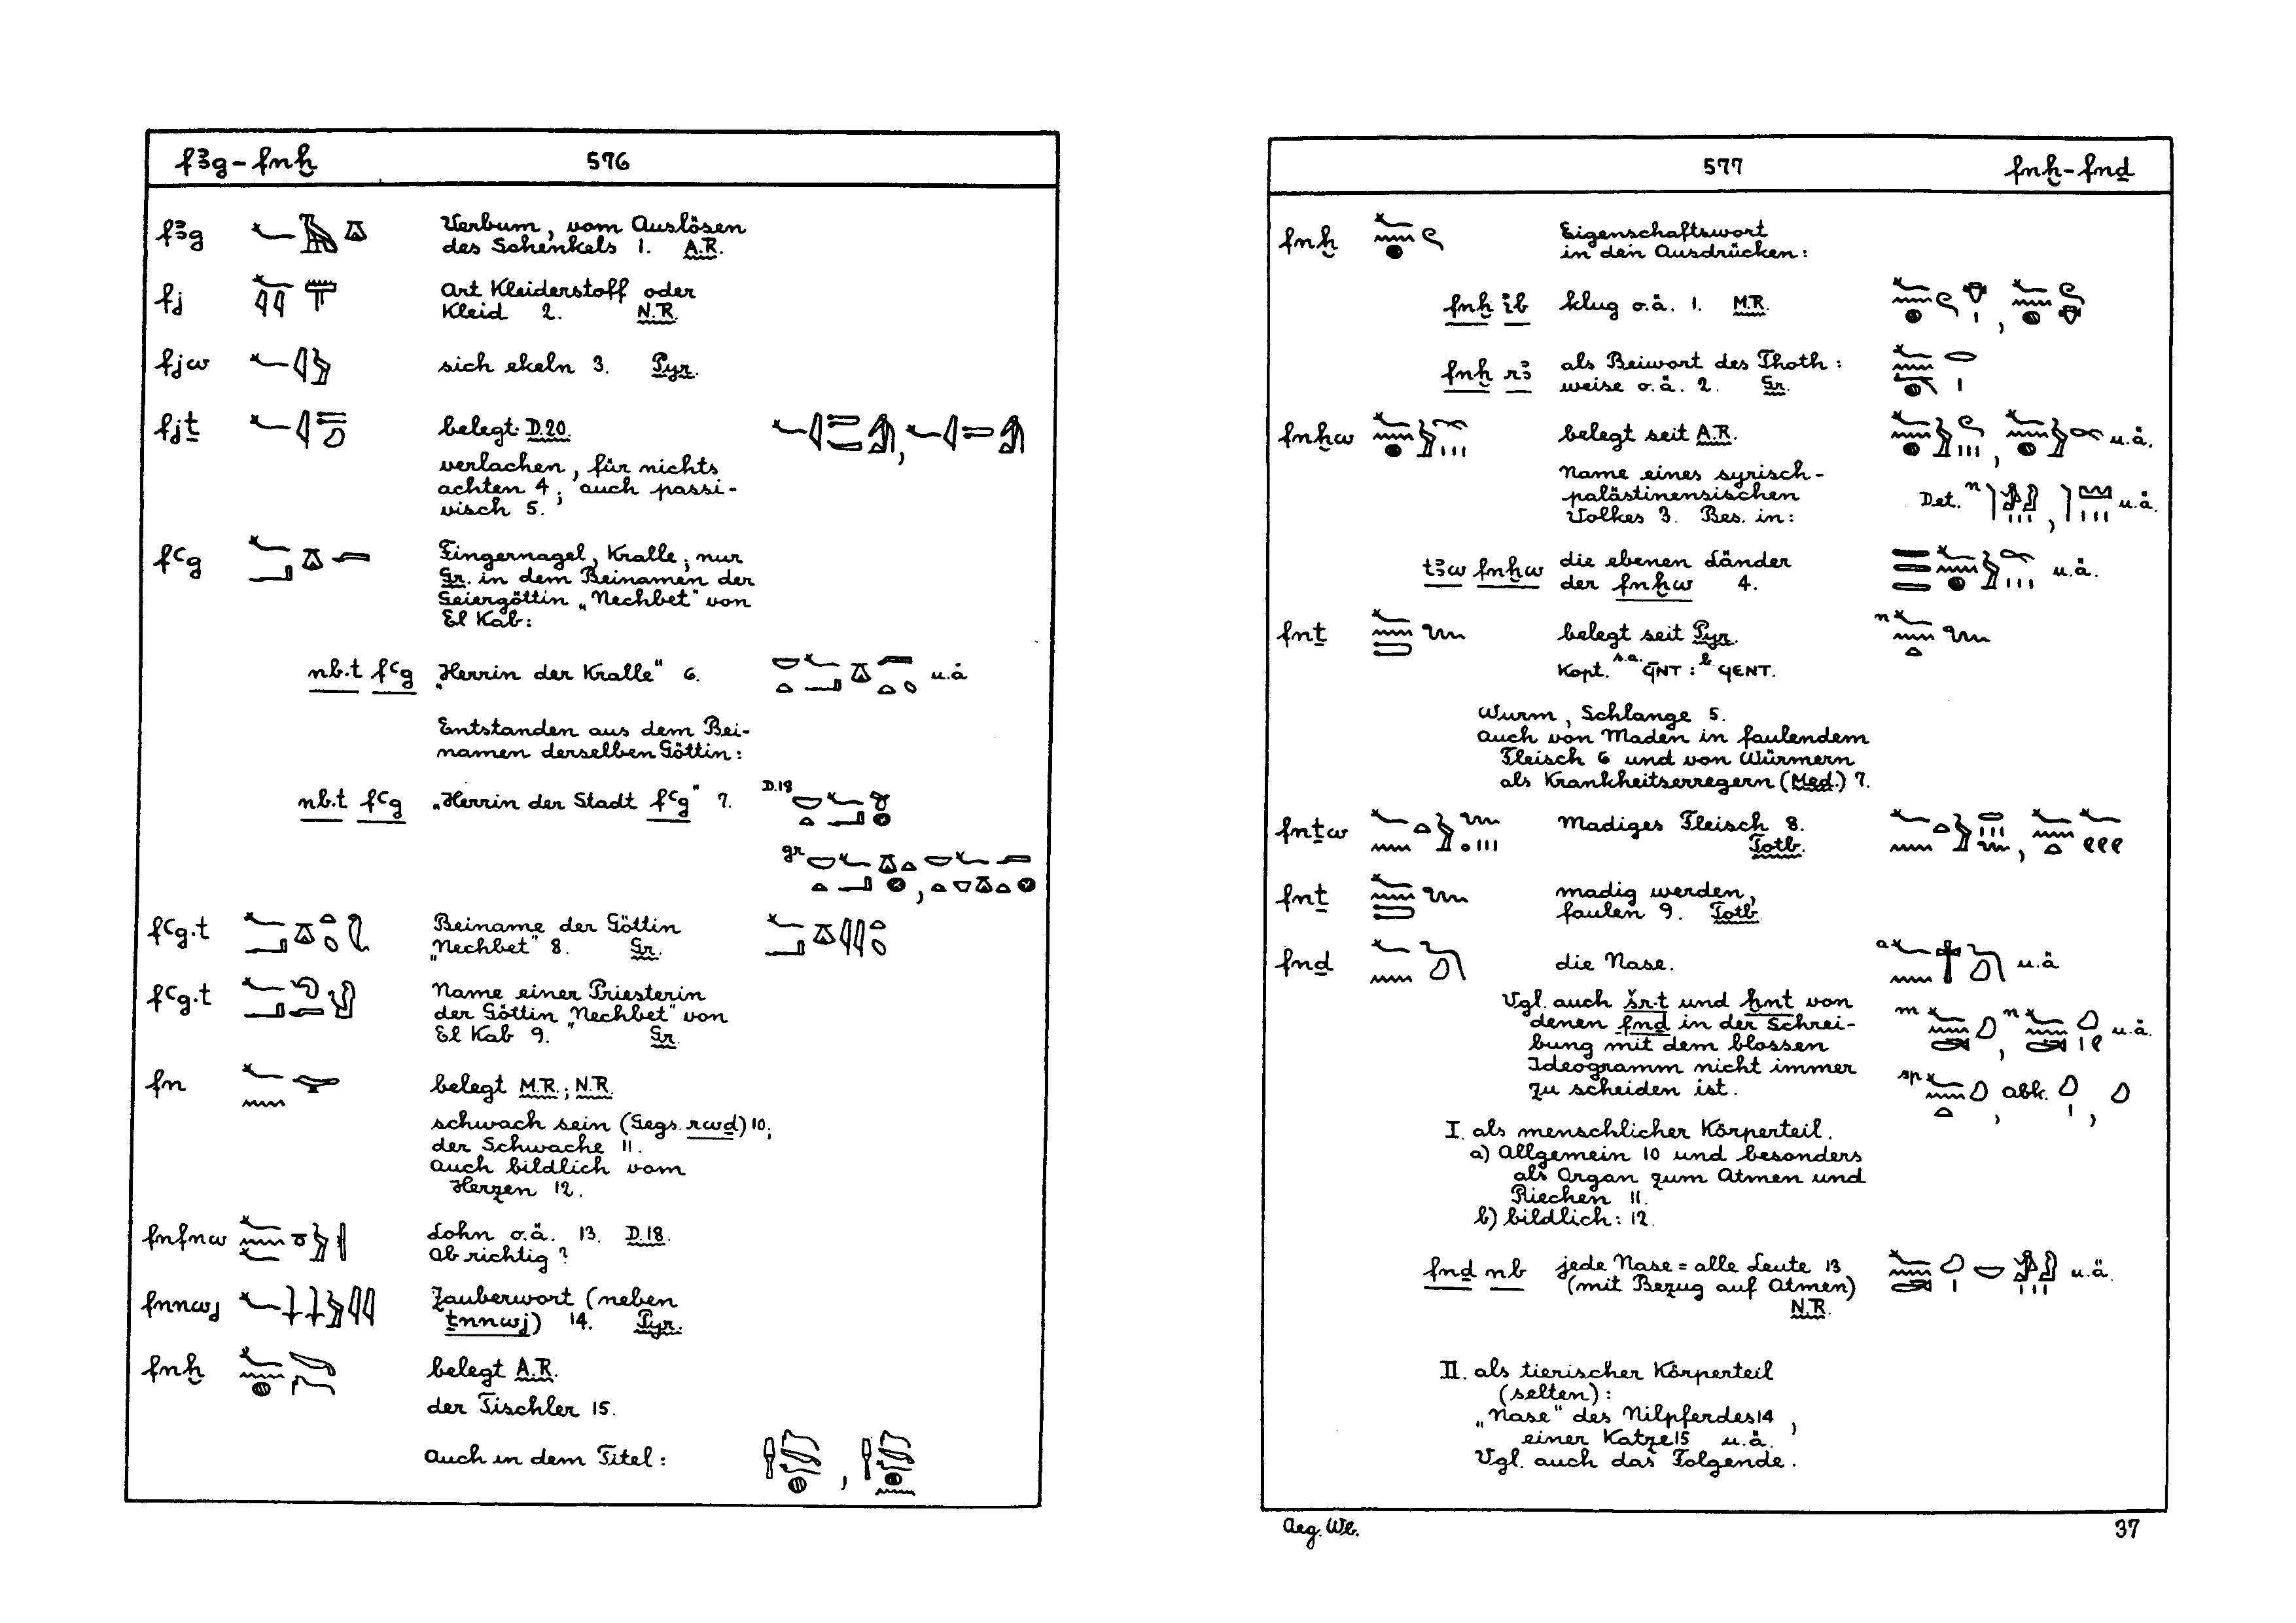 fꜣg – fnḫ 576
fꜣg Verbum, vom Auslösen
des Schenkels 1. A.R.
fj Art Kleiderstoff oder
Kleid 2. N.R.
fjw sich ekeln 3. Pyr.
fjṯ belegt D.20.
verlachen, für nichts
achten 4; auch passi-
visch 5.
fꜥg Fingernagel, Kralle; nur
Gr. in dem Beinamen der
Geiergöttin „Nechbet" von
El Kab:
nb.t fꜥg „Herrin der Kralle" 6. u.ä
Entstanden aus dem Bei-
namen derselben Göttin:
nb.t fꜥg „Herrin der Stadt fꜥg" 7. D.18
gr ,
fꜥg.t Beiname der Göttin
„Nechbet" 8. Gr.
fꜥg.t Name einer Priesterin
der Göttin „Nechbet" von
El Kab 9. Gr.
fn belegt M.R.; N.R.
schwach sein (Gegs. rwḏ) 10;
der Schwache 11.
Auch bildlich vom
Herzen 12.
fnfnw Lohn o.ä. 13. D.18.
Ob richtig?
fnnwj Zauberwort (neben
ṯnnwj) 14. Pyr.
fnḫ belegt A.R.
der Tischler 15.
Auch in dem Titel: ,
577 fnḫ – fnḏ
fnḫ Eigenschaftswort
in den Ausdrücken:
fnḫ ỉb klug o.ä. 1. M.R. ,
fnḫ rꜣ als Beiwort des Thoth:
weise o.ä. 2. Gr.
fnḫw belegt seit A.R. , u.ä.
Name eines syrisch-
palästinensischen Det. n , u.ä.
Volkes 3. Bes. in:
tꜣw fnḫw die ebenen Länder u.ä.
der fnḫw 4.
fnṯ belegt seit Pyr. n
Kopt. s.a. ϥN̄T : b ϥENT.
Wurm, Schlange 5.
auch von Maden in faulendem
Fleisch 6 und von Würmern
als Krankheitserregern (Med.) 7.
fnṯw Madiges Fleisch 8. ,
Totb.
fnṯ madig werden,
faulen 9. Totb.
fnḏ die Nase. a u.ä
Vgl. auch šr.t und ḫnt von
denen fnḏ in der Schrei- m , n u.ä.
bung mit dem blossen
Ideogramm nicht immer
zu scheiden ist. sp , abk. ,
I. als menschlicher Körperteil.
a) Allgemein 10 und besonders
als Organ zum Atmen und
Riechen 11.
b) bildlich: 12.
fnḏ nb jede Nase = alle Leute 13 u.ä.
(mit Bezug auf Atmen)
N.R.
II. als tierischer Körperteil
(selten):
„Nase" des Nilpferdes 14,
einer Katze 15 u.ä.
Vgl. auch das Folgende.
Aeg. Wb. 37